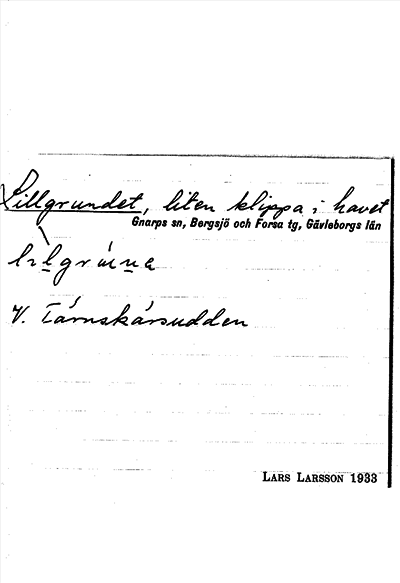 Lillgrundet, liten klippa i havet
Gnarps sn, Bergsjö och Forsa tg, Gävleborgs län
V. Tärnskärsudden
LARS LARSSON 1933